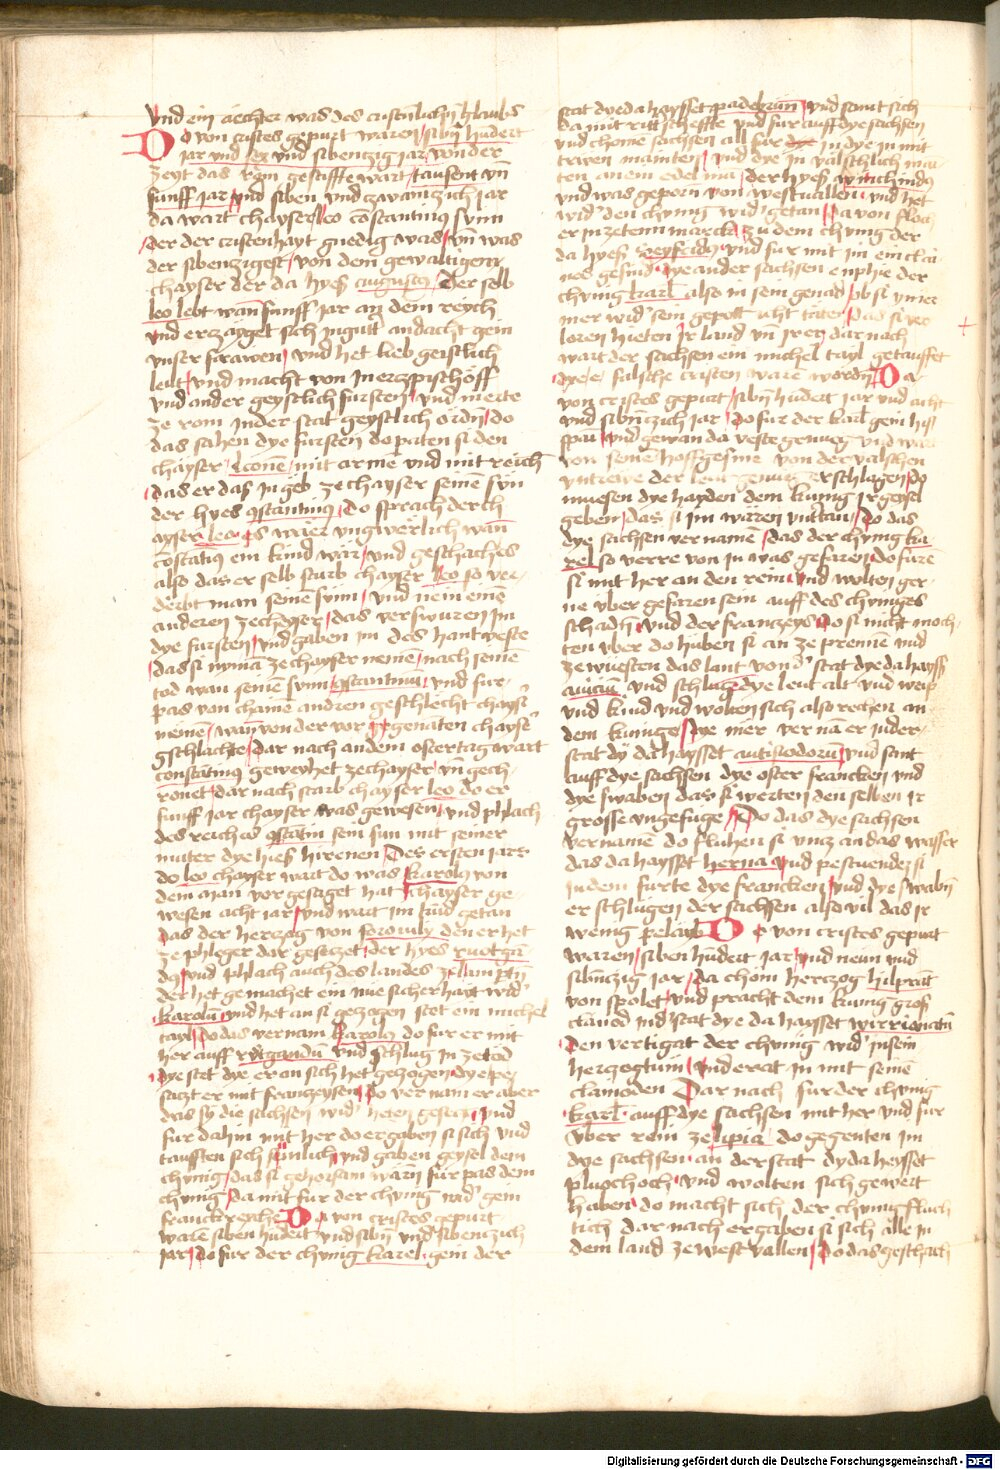 vnd ein ächter was des cristenlichen glaubs
Do von cristes gepurt waren siben hundert
jar vnd sex vnd sibentzig jar von der
zeyt das rom gestifftet wart tausent vn
funff jar vnd siben vnd zwaintzich jar
da wart chayser leo constantinus sunn
der der cristenhayt gnedig was vn was
der sibentzigest von dem gewaltigen
chayser der da hyeß augustus Der selb
leo lebt wan funff jar an dem reych
vnd ertzayget sich in gutt andacht gein
vnser frawen vnd het lieb geistlich
leut vnd macht von in ertzpischöff
vnd ander geystlich fursten vnd merte
ze rom in der stat geystlich ördn do
das sahen dye fursten do paten si den
chayser leonem mit armē vnd mit reich
das er das in geb ze chayser seinē sun
der hyes 9stantinus Do sprach der ch
ayser leo es wär vngwerlich wan
constātius ein kind wär vnd geschach es
also das er selb sturb chayser leo so ver
derbt man seinē sunn vnd nem einē
anderen ze chayser das verswuren im
dye fursten vnd gaben im des hantveste
das si nyman ze chayser nemen nach seinē
tod wan seinen sunn 9stantinum vnd fur
pas von chainē andren geschlecht chaysr
nemen wan von der vor genäten chaysr
gschlächte dar nach an dem ostertag wart
constātinus geweyhet ze chayser vn gech
rönet dar nach starb chayser leo do er
funff jar chayser was gewesen vnd phlach
des reichas 9stātin sein sun mit seiner
muter dye hieß hirenen Des ersten jars
do leo chayser wart do was karolus von
dem man vor gesaget hat chayser ge
wesen acht jar vnd wart im kund getan
das der hertzog von foroiuly den er het
ze phleger dar gesetzet der hyes ruotgau
dus vnd phlach auch des landes ze lamparten
der het gemachet ein nue sicherhayt wid
karolum vnd het an si gezogen stet ein michel
tayl Do das vernam karolus do fur er mit
her auff rutgandum vnd schlug in ze tod
dye stet dye er an sich het gezogen dye pe
satzt er mit frantzeysen Do vernam er aber
das sy die sachsen wid heten gesetzt vnd
fur dahin mit her do ergaben si sich vnd
taufften sich sumlich vnd gaben geysel dem
chvnig das si gehorsam wärn fur pas dem
chvnig Da mit fur der chvnig wid gein
franckreych Do von cristes gepurt
warē siben hundert vnd sibn vnd sibentzich
jar do fur der chvnig karel gein der
stat dye da haysset padebrun vnd samt sich
da mit ritterscheffte vnd fur auff dye sachsen
vnd chome sachsen all fur in dye in mit
trwen mainten vnd dye in valschlich mai
ten an em edel man der hyeß witichindus
vnd was geporn von westuallen vnd het
wid den chvnig wid getan Da von floch
er in zetenn marck zu dem chvnig der
da hyeß seyfridus vnd fur mit im ein clai
nes gesind dye ander sachsen enphie der
chvnig karl also in sein genad ob si ymer
mer wid sein gepott icht täten Das si ver
loren hieten ir land vn ir ere dar nach
wart der sachsen ein michel tayl getauffet
dye falsche cristen warē wordn Do
von cristes gepurt siben hundert jar vnd acht
vnd sibentzich jar do fur der karl gein his
pan vnd gewan da veste genueg vnd wart
von seinē hoffgesine von der valschen
vntrewe der leut genueg erschlagen Do
muesen dye hayden dem kunig ir geysel
geben das si im wären vnttan Do das
dye sachsen vernamē das der chvnig ka
rel so verre von in was gefaren do furē
si mit her an den rein vnd wolten ger
ne vber gefaren sein auff des chvniges
schadn vnd der frantzeys Do si nicht moch
ten vber do huben si an ze prennē vnd
ze wuesten das lant von d stat dye da hayss
auicium vnd schlugē dye leut alt vnd weip
vnd kind vnd wolten sich also rechen an
dem kunige dye mer vernam er in der
stat dy da haysset autisiodorum vnd sant
auff dye sachsen dye oster francken vnd
dye swaben das si werten den selben ir
grosse vngefuge Do das dye sachsen
vernamē do fluhen si vntz an das wasser
das da haysset herna vnd pestuenden si
in dem furte dye francken vnd dye swabn
er schlugen der sachsen also vil das ir
wenig pelayb Do von cristes gepurt
waren siben hundert jar vnd neun vnd
sibentzig jar da chom hertzog hilprant
von spolet vnd pracht dem kunig groß
clainod in d stat dye da haysset wirrionatum
den vertigat der chvnig wid in sein
hertzogtum vnd erat in mit seinē
clainoden Dar nach fur der chvnig
karl auff dye sachsen mit her vnd fur
vber rein ze lipia do gegenten im
dye sachsen an der stat dy da heysset
pluochoch vnd wolten sich gewert
haben do macht sich der chvnig fluch
tich dar nach ergaben si sich alle in
dem land ze westuallen Do das geschach
Digitalisierung gefördert durch die Deutsche Forschungsgemeinschaft - DFG